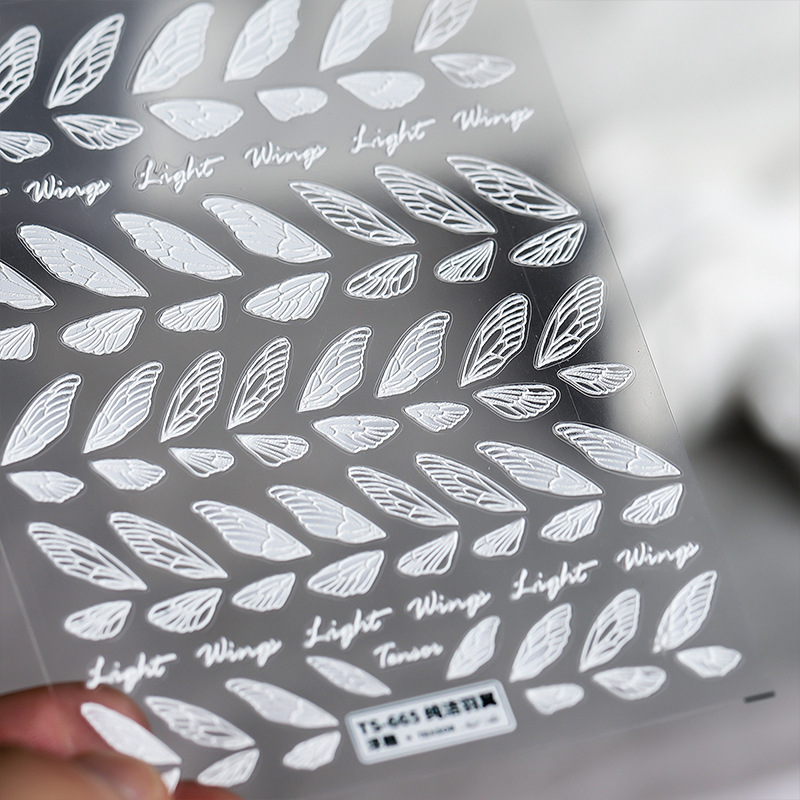 Light Wings Light Wings
Wings
Light Wings
Light Wings
Light Wings
Tensor
TS-665 纯洁羽翼
浮雕